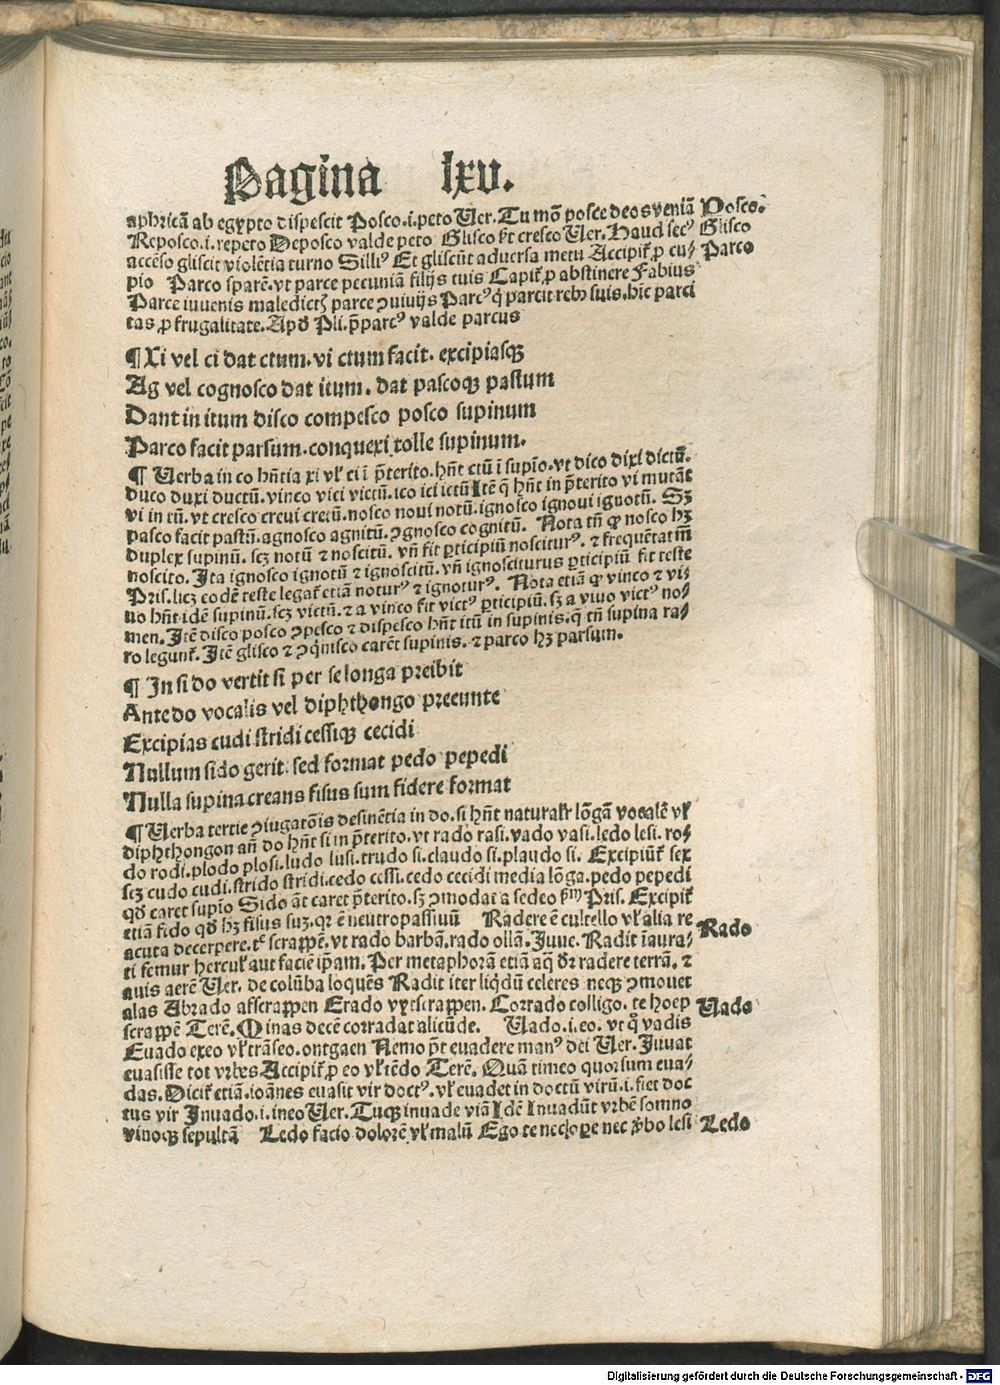 Pagina lxv.
aphricā ab egypto dispescit Posco.i.peto Uer. Tu mō posce deos veniā Posco.
Reposco.i.repeto Deposco valde peto Glisco kt cresco Uer. Haud secꝰ Glisco
accēso gliscit violētia turno Silliꝰ Et gliscūt aduersa metu Accipiť ꝓ cu⸗ Parco
pio Parco sparē.vt parce pecuniā filijs tuis Capiť ꝓ abstinere Fabius
Parce iuuenis maledictꝫ parce ꝯuiuijs Parcꝰ q̇ parcit rebꝰ suis.hic parci
tas ꝓ frugalitate.Apđ Pli.p̄parcꝰ valde parcus
¶ Xi vel ci dat ctum.vi ctum facit.excipiasqꝫ
Ag vel cognosco dat itum.dat pascoqꝫ pastum
Dant in itum disco compesco posco supinum
Parco facit parsum.conquexi tolle supinum.
¶ Uerba in co hn̄tia xi vľ ci ī p̄terito.hn̄t ctū ī supīo.vt dico dixi dictū.
duco duxi ductū.vinco vici victū.ico ici ictū Itē q̄ hn̄t in p̄terito vi mutāt
vi in tū.vt cresco creui cretū.nosco noui notū.ignosco ignoui ignotū. Sꝫ
pasco facit pastū.agnosco agnitū.ꝯgnosco cognitū. Nota tn̄ ꝙ nosco hꝫ
duplex supinū.scꝫ notū ⁊ noscitū.vn̄ fit ꝑticipiū nosciturꝰ.⁊ frequētatiuū
noscito.Ita ignosco ignotū ⁊ ignoscitū.vn̄ ignosciturus ꝑticipiū fit teste
Pris.licꝫ eodē teste legať etiā noturꝰ ⁊ ignoturꝰ. Nota etiā ꝙ vinco ⁊ vi⸗
uo hn̄t idē supinū.scꝫ victū.⁊ a vinco fit victꝰ ꝑticipiū.sꝫ a viuo victꝰ no⸗
men.Itē disco posco ꝯpesco ⁊ dispesco hn̄t itū in supinis.q̄ tn̄ supina ra⸗
ro legunť.Itē glisco ⁊ ꝯq̇nisco carēt supinis.⁊ parco hꝫ parsum.
¶ In si do vertit si per se longa preibit
Ante do vocalis vel diphthongo preeunte
Excipias cudi stridi cessiqꝫ cecidi
Nullum sido gerit.sed format pedo pepedi
Nulla supina creans fisus sum fidere format
¶ Uerba tertie ꝯiugatōis desinētia in do.si hn̄t naturalľ lōgā vocalē vľ
diphthongon an̄ do hn̄t si in p̄terito.vt rado rasi.vado vasi.ledo lesi.ro⸗
do rodi.plodo plosi.ludo lusi.trudo si.claudo si.plaudo si. Excipiūť sex
scꝫ cudo cudi.strido stridi.cedo cessi.cedo cecidi media lōga.pedo pepedi
qđ caret supīo Sido āt caret p̄terito.sꝫ ꝯmodat a sedeo ẜm Pris. Excipiť
etiā fido qđ hꝫ fisus suꝫ.qꝛ ē neutropassiuū Radere ē cultello vľ alia re
acuta decerpere.tꝰ scrappē.vt rado barbā.rado ollā.Juue. Radit īaura⸗ Rado
ti femur herculꝫ aut faciē ip̄am. Per metaphorā etiā aq̄ dr̄ radere terrā.⁊
auis aerē Uer. de colūba loquēs Radit iter liq̇dū celeres neqꝫ ꝯmouet
alas Abrado affscrappen Erado vytscrappen. Corrado colligo.te hoep
scrappē Terē. Minas decē corradat alicūde. Uado.i.eo.vt q̊ vadis Uado
Euado exeo vľ trāseo.ontgaen Nemo pōt euadere manꝰ dei Uer. Juuat
euasisse tot vrbes Accipiť ꝓ eo vľ tēdo Terē. Quā timeo quorsum eua⸗
das.Diciť etiā.ioānes euasit vir doctꝰ.vľ euadet in doctū virū.i.fiet doc
tus vir Inuado.i.ineo Uer. Tuqꝫ inuade viā Idē Inuadūt vrbē somno
vinoqꝫ sepultā Ledo facio dolorē vľ malū Ego te nec ioꝑe nec v̄bo lesi Ledo
Digitalisierung gefördert durch die Deutsche Forschungsgemeinschaft - DFG